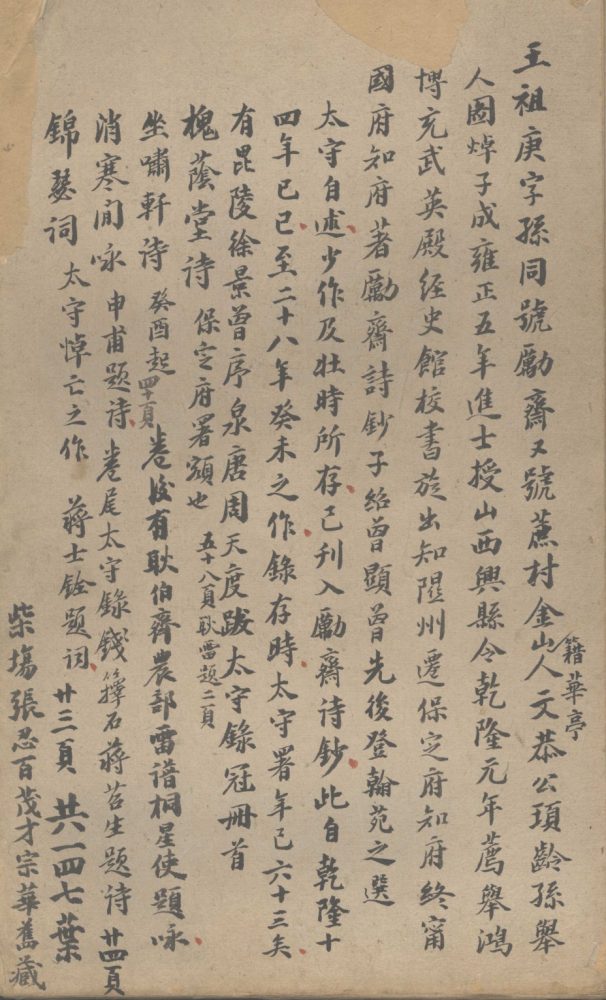 王祖庚字孫同號勵齋又號蔗村金山人文恭公頊齡孫舉
籍華亭
人圖炜子成雍正五年進士授山西興縣令乾隆元年薦舉鴻
博充武英殿經史館校書旋出知隰州遷保定府知府終甯
國府知府著勵齋詩鈔子紹曾顯曾先後登翰苑之選
太守自述少作及壯時所存已刋入勵齋诗鈔此自乾隆十
四年己巳至二十八年癸未之作錄存時太守署年已六十三矣
有毘陵徐景曾序泉唐周天度跋太守錄冠冊首
槐蔭堂诗 保定府署額也 五十八頁耿雷題二頁
坐嘯軒诗 癸酉起 四十頁 卷後有耿伯齊農部雷譜桐星使題咏
消寒间咏 申甫題诗 卷尾太守錄錢籜石蔣苕生題诗 廿四頁
錦瑟词 太守悼亡之作 蔣士銓題词 廿三頁 共一四七葉
柴塲張忍百茂才宗華舊藏